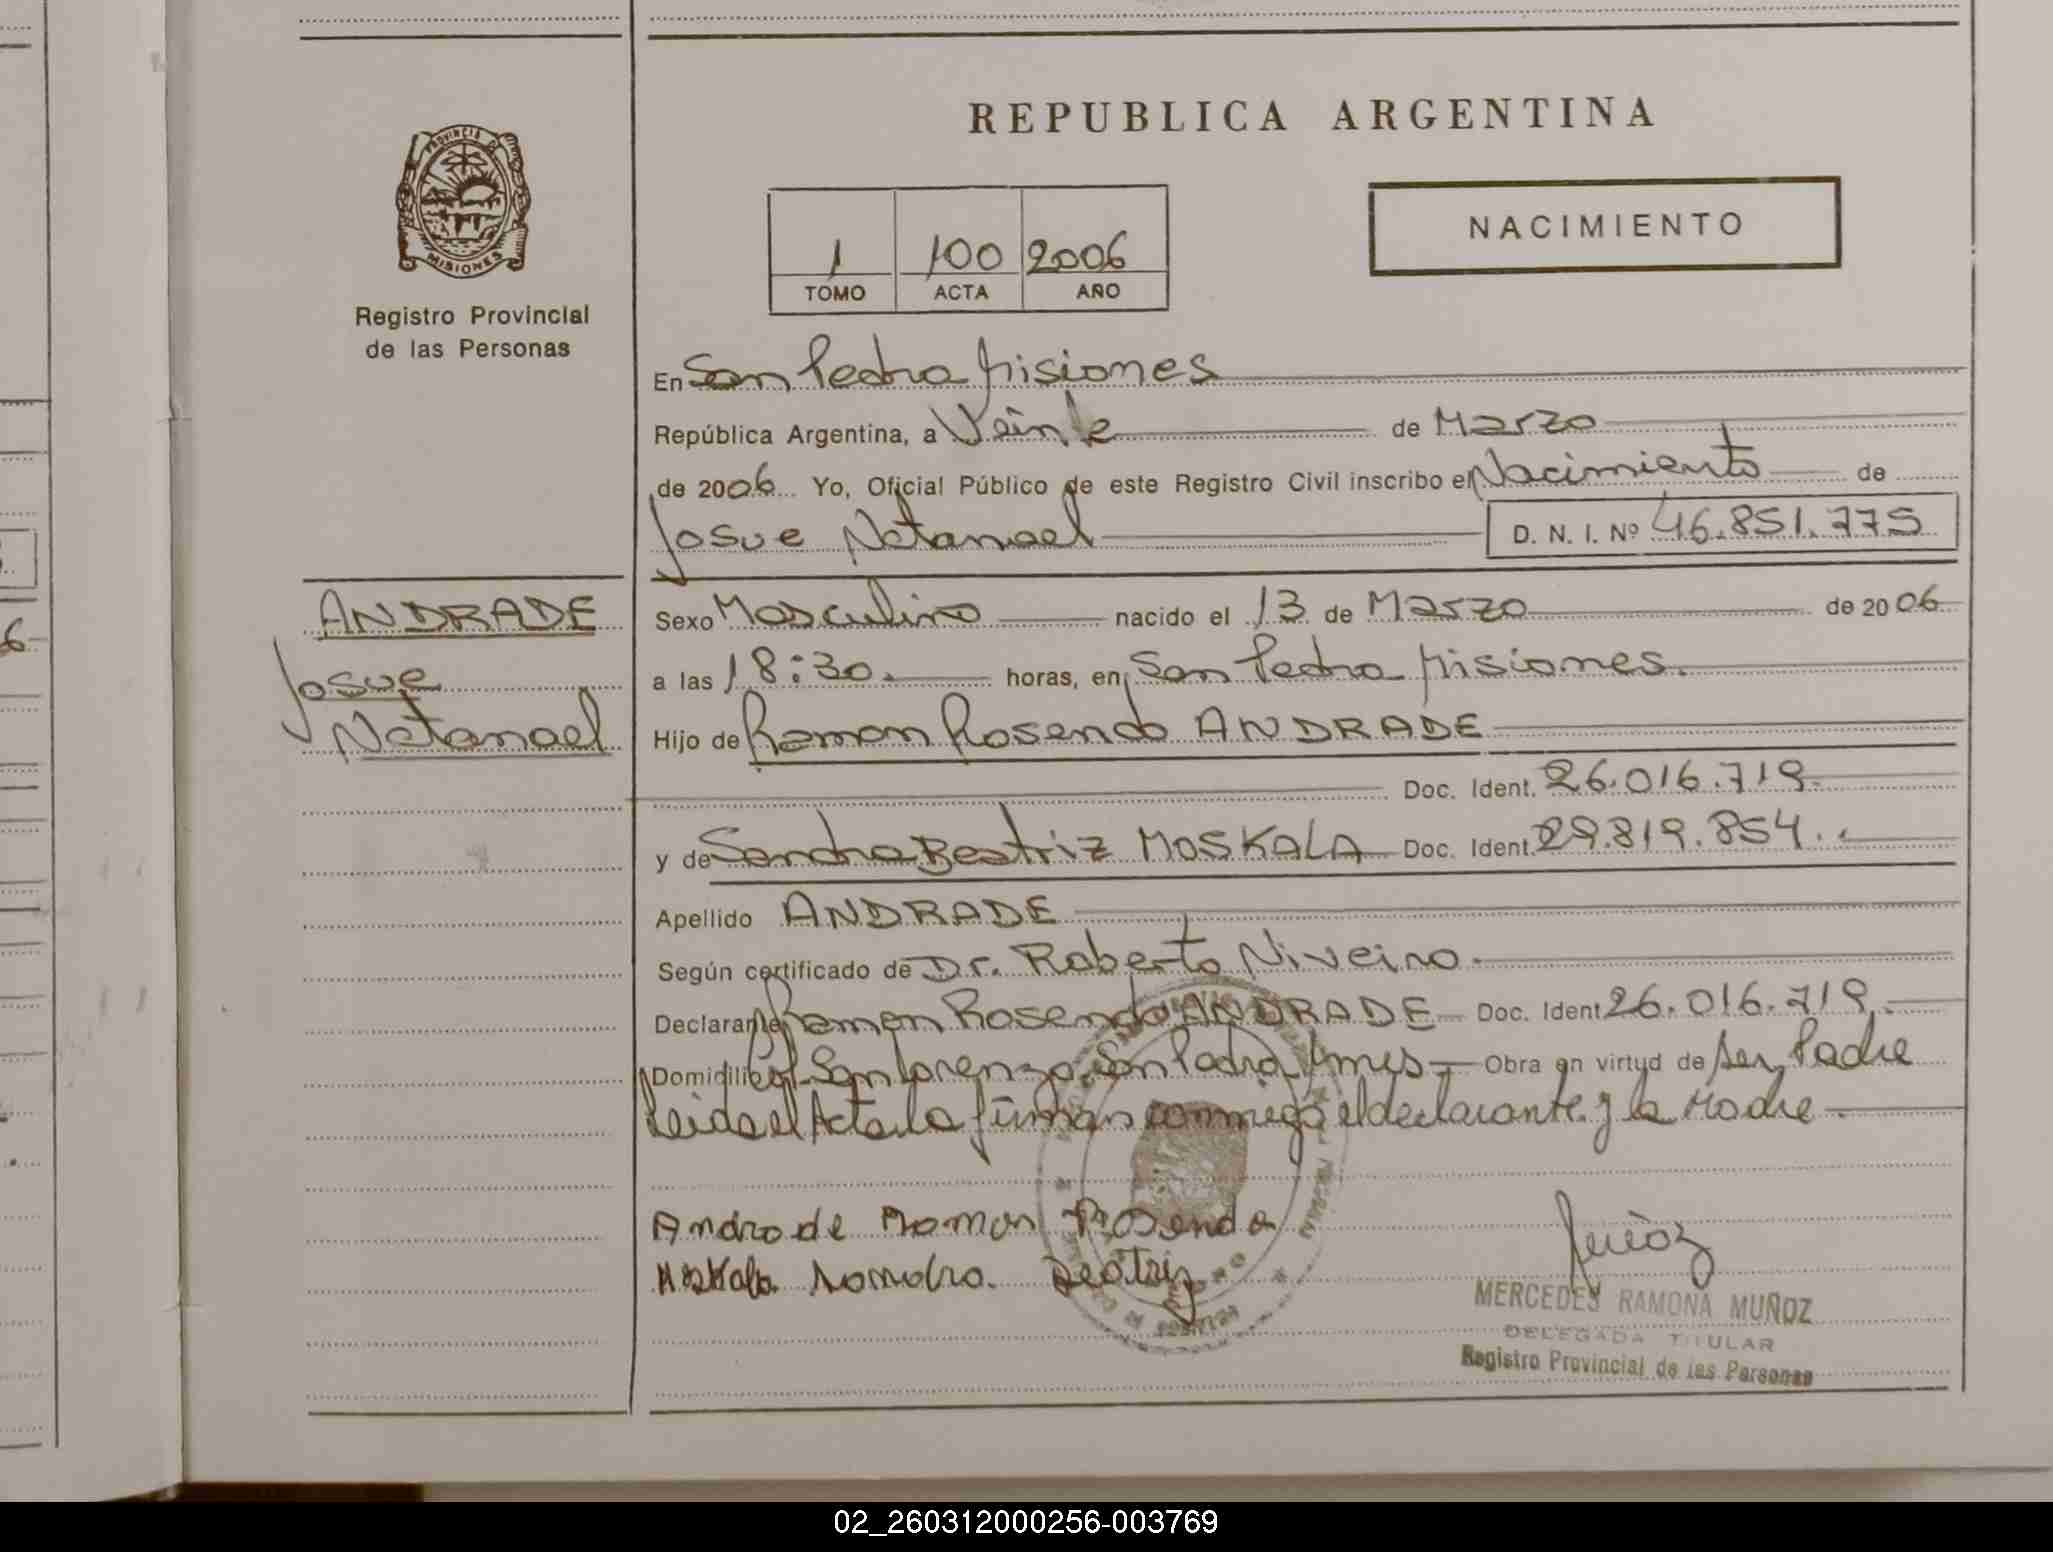 REPUBLICA ARGENTINA
PROVINCIA DE
MISIONES
Registro Provincial
de las Personas
1 100 2006
TOMO ACTA AÑO
NACIMIENTO
En San Pedro Misiones
República Argentina, a Veinte de Marzo
de 2006 Yo, Oficial Público de este Registro Civil inscribo el Nacimiento de
Josue Natanael D. N. I. Nº 46.851.775
ANDRADE
Josue
Natanael
Sexo Masculino nacido el 13 de Marzo de 2006
a las 18:30. horas, en San Pedro Misiones.
Hijo de Ramon Rosendo ANDRADE
Doc. Ident. 26.016.719.
y de Sandra Beatriz MOSKALA Doc. Ident. 29.819.854.
Apellido ANDRADE
Según certificado de Dr. Roberto Niveiro.
Declarante Ramon Rosendo ANDRADE Doc. Ident 26.016.719.
Domicilio San Lorenzo, San Pedro, Mnes Obra en virtud de ser Padre
Leida el Acta la firman conmigo el declarante y la Madre
Androde Romon Rosendo
Moskala Sandra. Beatriz
Muñoz
MERCEDES RAMONA MUÑOZ
DELEGADA TITULAR
Registro Provincial de las Personas
02_260312000256-003769